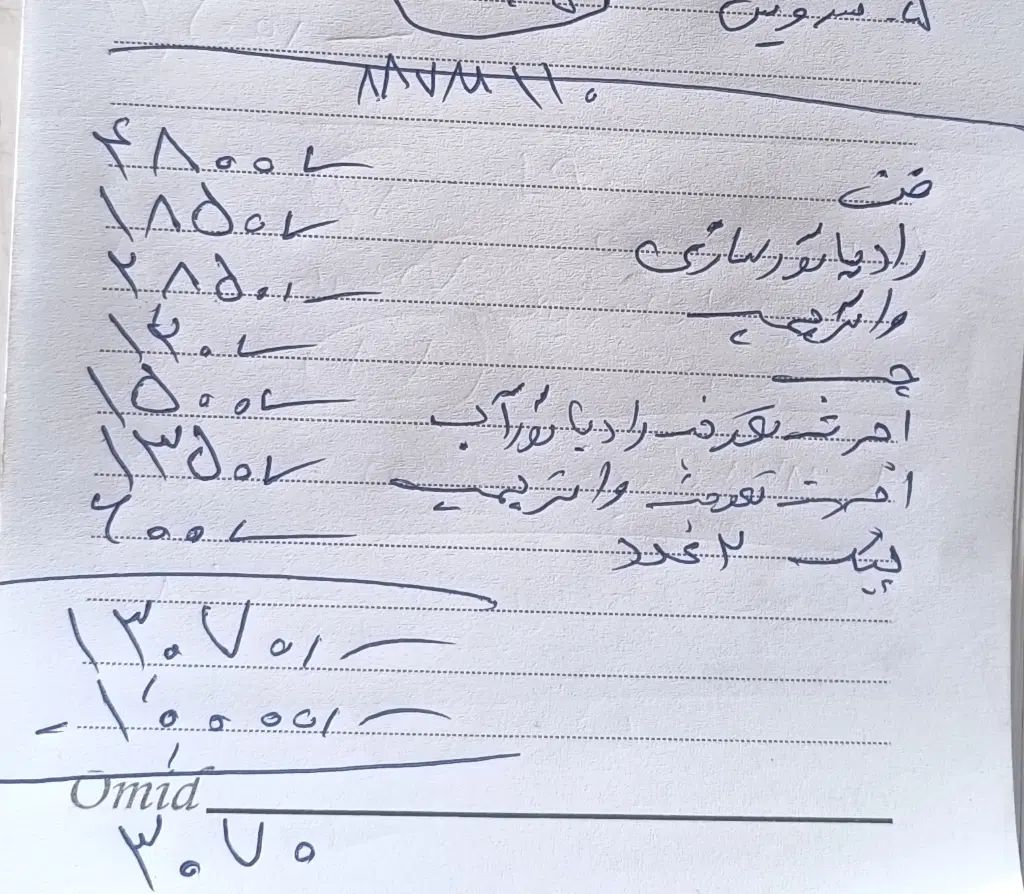 ۵. سرویس
۸۸۷۸۸۱۱۰
فن ۴۸۰۰/-
رادیاتورسازی ۱۸۵۰/-
واترپمپ ۲۸۵۰/-
چسب ۱۲۰/-
اجرت تعویض رادیاتور آب ۱۵۰۰/-
اجرت تعویض واترپمپ ۱۳۵۰/-
پیک ۲ عدد ۶۰۰/-
۱۳۰۷۰/-
- ۱۰۰۰۰/-
Omid
۳۰۷۰